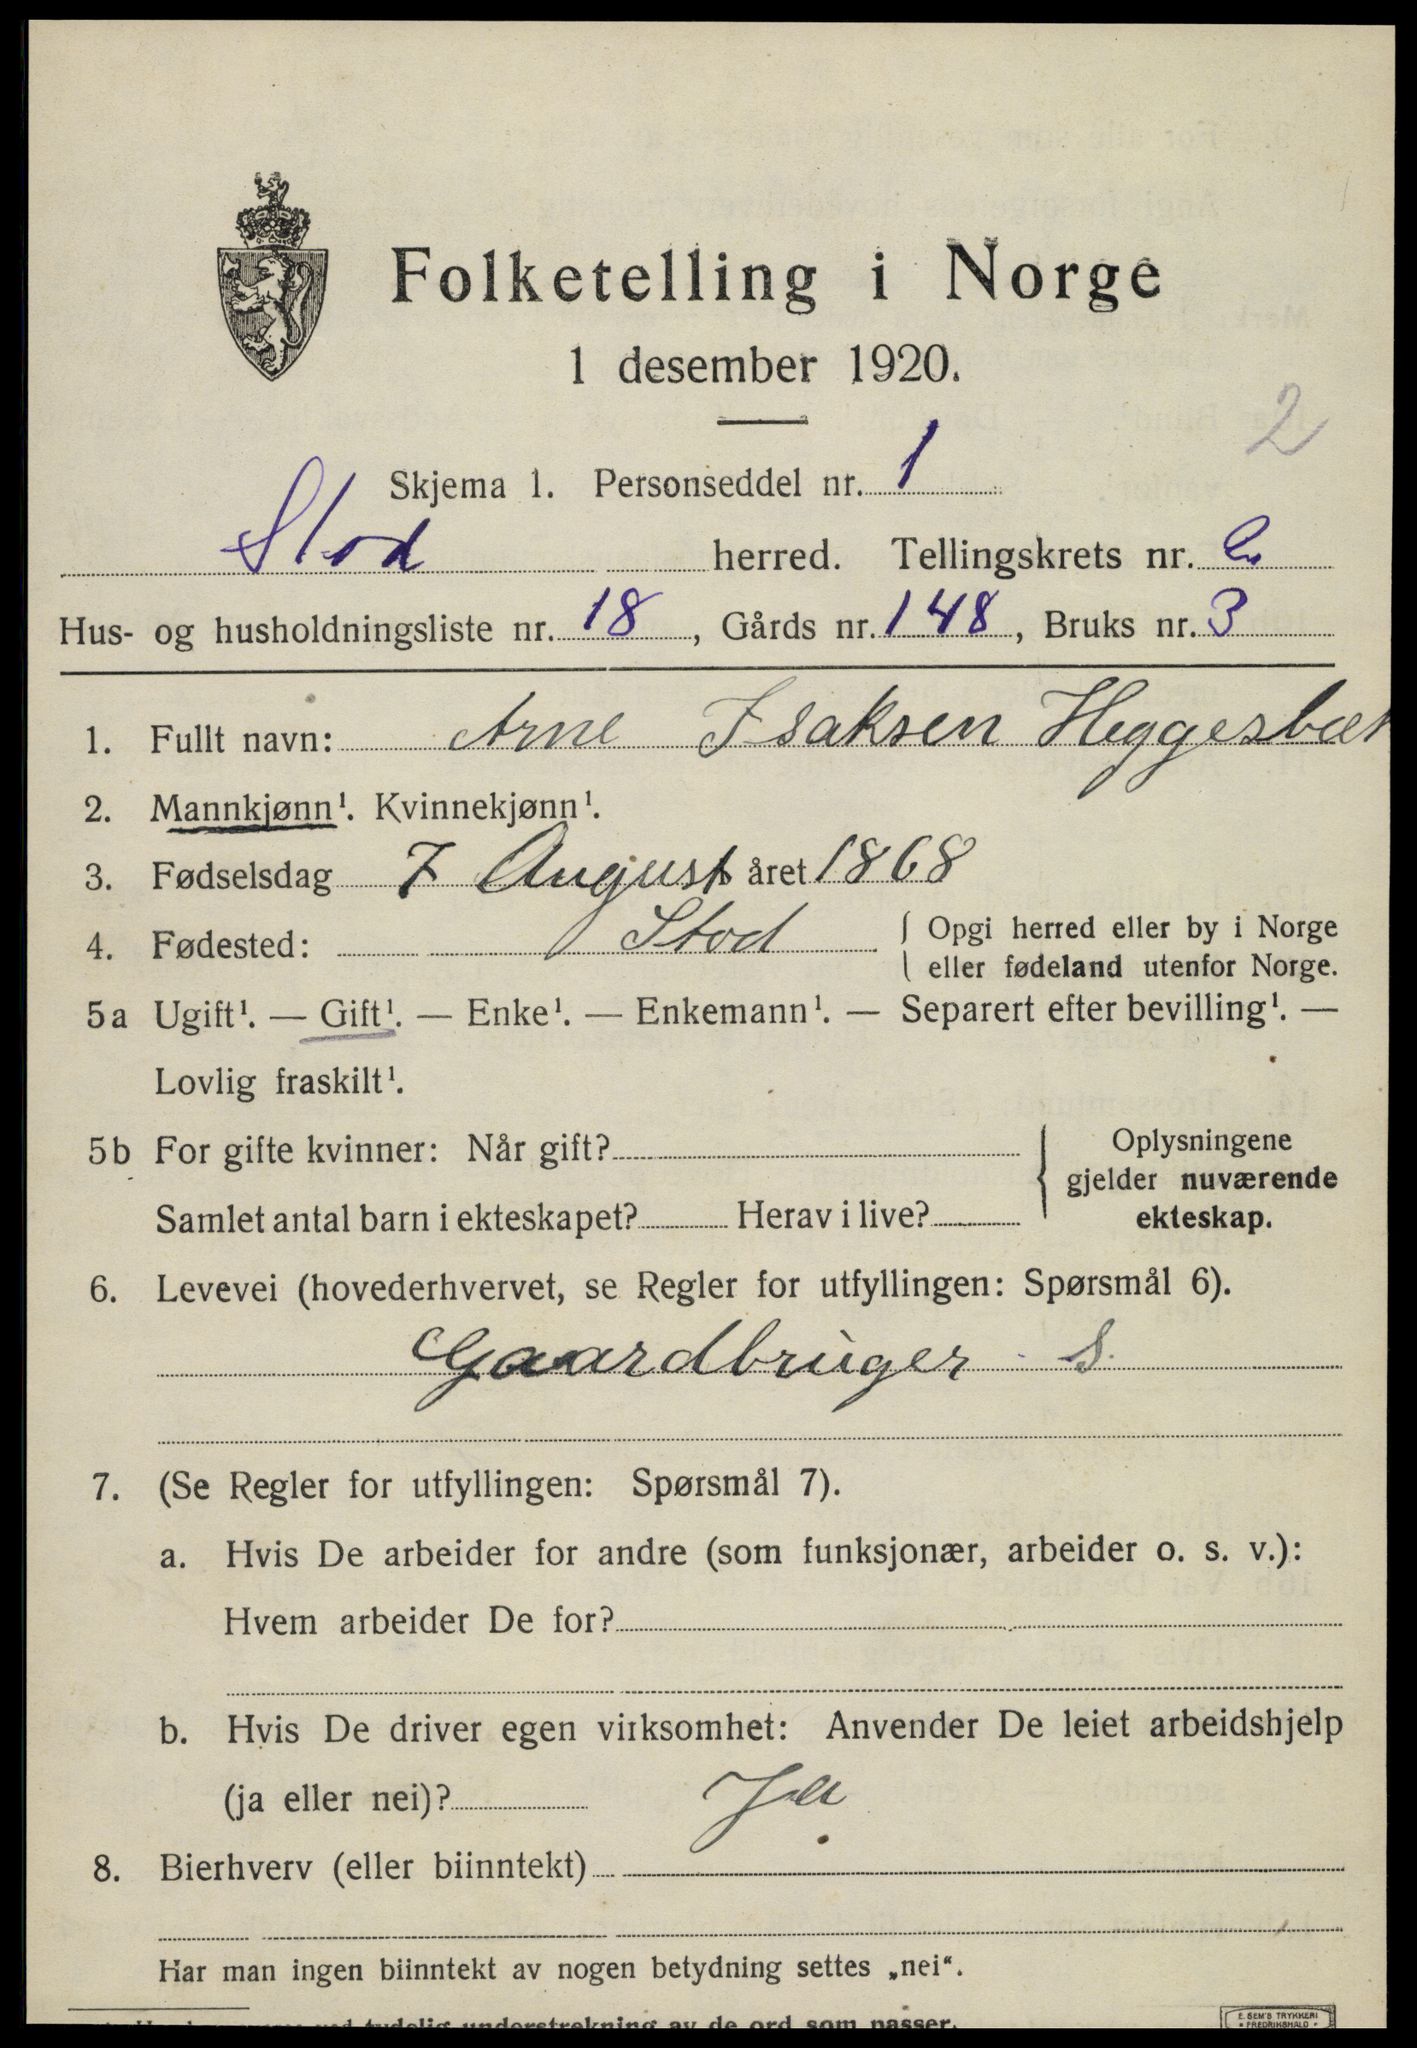 Folketelling i Norge
1 desember 1920.
2
Skjema 1. Personseddel nr. 1
Stod herred. Tellingskrets nr. 2
Hus- og husholdningsliste nr. 18, Gårds nr. 148, Bruks nr. 3
1. Fullt navn: Arne Isaksen Heggesbæk
2. Mannkjønn¹. Kvinnekjønn¹.
3. Fødselsdag 7 August året 1868
4. Fødested: Stod { Opgi herred eller by i Norge
eller fødeland utenfor Norge.
5a Ugift¹. — Gift¹. — Enke¹. — Enkemann¹. — Separert efter bevilling¹. —
Lovlig fraskilt¹.
5b For gifte kvinner: Når gift?
Samlet antal barn i ekteskapet? Herav i live?
Oplysningene
gjelder nuværende
ekteskap.
6. Levevei (hovederhvervet, se Regler for utfyllingen: Spørsmål 6).
Gaardbruger s.
7. (Se Regler for utfyllingen: Spørsmål 7).
a. Hvis De arbeider for andre (som funksjonær, arbeider o. s. v.):
Hvem arbeider De for?
b. Hvis De driver egen virksomhet: Anvender De leiet arbeidshjelp
(ja eller nei)? Ja
8. Bierhverv (eller biinntekt)
Har man ingen biinntekt av nogen betydning settes „nei“.
ved tydelig understrekning av de ord som passer.
E. SEM'S TRYKKERI
FREDRIKSHALD